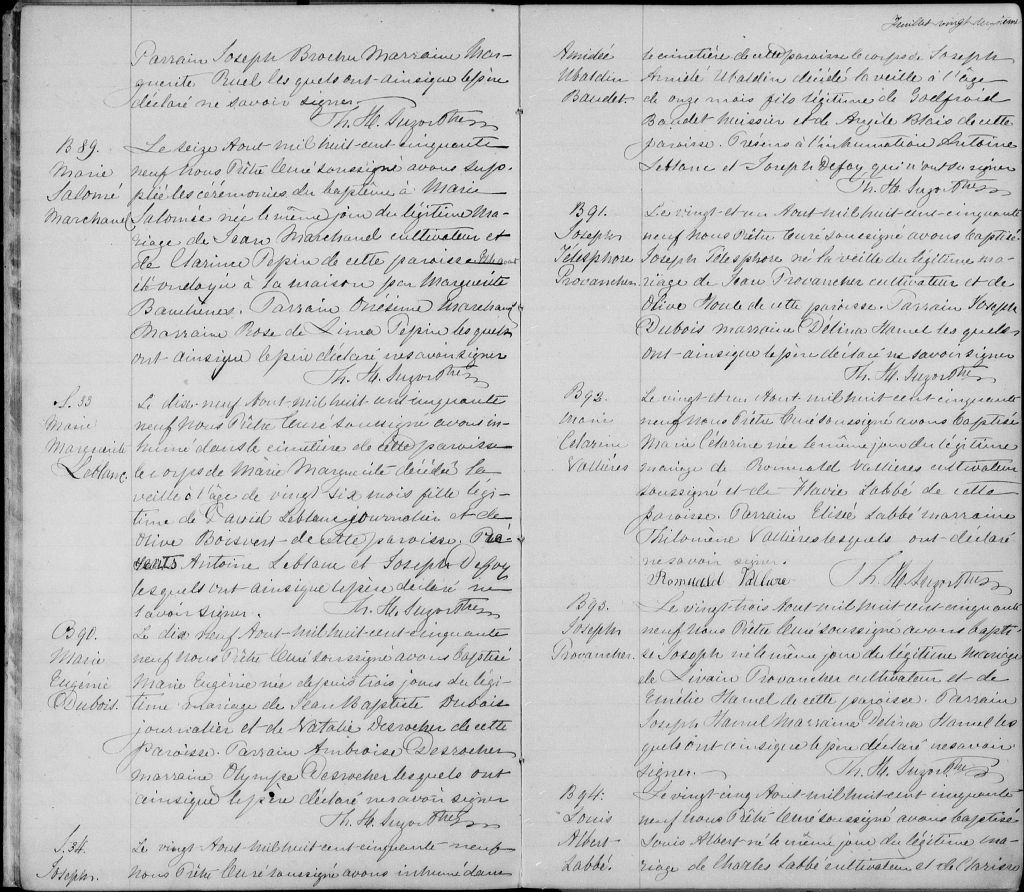 Parrain Joseph Brochu Marraine Mar-
guerite Ruel lesquels ont ainsi que le père
déclaré ne savoir signer
Th. H. Suzor Ptre
B 89.
Marie
Salomé
Marchand
Le seize Aout mil huit cent cinquante
neuf Nous Prêtre Curé soussigné avons sup-
pléé les cérémonies du baptême à Marie
Salomée née le même jour du légitime ma-
riage de Jean Marchand cultivateur et
de Clarine Pepin de cette paroisse
été ondoyée à la maison par Marguerite
Parrain Onésime Marchand
Marraine Rose de Lima Pepin lesquels
ont ainsi que le père déclaré ne savoir signer
Th. H. Suzor Ptre
S. 33
Marie
Marguerite
Leblanc.
Le dix-neuf Aout mil huit cent cinquante
neuf Nous Prêtre Curé soussigné avons in-
humé dans le cimetière de cette paroisse
le corps de Marie Marguerite décédée la
veille à l'âge de vingt six mois fille légi-
time de David Leblanc journalier et de
Olive Boisvert de cette paroisse. Pré-
sents Antoine Leblanc et Joseph Defoy
lesquels ont ainsi que le père déclaré ne
savoir signer.
Th. H. Suzor Ptre
B 90.
Marie
Eugénie
Dubois.
Le dix neuf Aout mil huit cent cinquante
neuf Nous Prêtre Curé soussigné avons baptisé
Marie Eugénie née depuis trois jours du légi-
time mariage de Jean Baptiste Dubois
journalier et de Natalie Desrocher de cette
paroisse. Parrain Ambroise Desrocher
marraine Olympe Desrocher lesquels ont
ainsi que le père déclaré ne savoir signer
Th. H. Suzor Ptre
S. 34.
Joseph.
Le vingt Aout mil huit cent cinquante neuf
Nous Prêtre Curé soussigné avons inhumé dans
Feuillet vingt deuxième
Amidée
Ubaldin
Baudet.
le cimetière de cette paroisse le corps de Joseph
Amidé Ubaldin décédé la veille à l'âge
de onze mois fils légitime de Godfroid
Baudet huissier et de Angèle Blais de cette
paroisse. Présens à l'inhumation Antoine
Leblanc et Joseph Defoy qui n'ont su signer
Th. H. Suzor Ptre
B 91.
Joseph
Télésphore
Provancher.
Le vingt et un Aout mil huit cent cinquante
neuf Nous Prêtre Curé soussigné avons baptisé
Joseph Télesphore né la veille du légitime ma-
riage de Jean Provancher cultivateur et de
Olive Houle de cette paroisse. Parrain Joseph
Dubois marraine Délina Hamel lesquels
ont ainsi que le père déclaré ne savoir signer
Th. H. Suzor Ptre
B 92.
Marie
Cétarine
Vallières
Le vingt et un Aout mil huit cent cinquante
neuf Nous Prêtre Curé soussigné avons baptisé
Marie Cétarine née le même jour du légitime
mariage de Romuald Vallières cultivateur
soussigné et de Flavie Labbé de cette
paroisse. Parrain Elisée Labbé marraine
Philomène Vallières lesquels ont déclaré
ne savoir signer.
Romuald Vallière
Th. H. Suzor Ptre
B 93.
Joseph
Provancher.
Le vingt trois Aout mil huit cent cinquante
neuf Nous Prêtre Curé soussigné avons bapti-
sé Joseph né le même jour du légitime mariage
de Livain Provancher cultivateur et de
Emélie Hamel de cette paroisse. Parrain
Joseph Hamel Marraine Délina Hamel les
quels ont ainsi que le père déclaré ne savoir
signer.
Th. H. Suzor Ptre
B 94.
Louis
Albert
Labbé.
Le vingt cinq Aout mil huit cent cinquante
neuf Nous Prêtre Curé soussigné avons baptisé
Louis Albert né le même jour du légitime ma-
riage de Charles Labbé cultivateur et de Clarisse